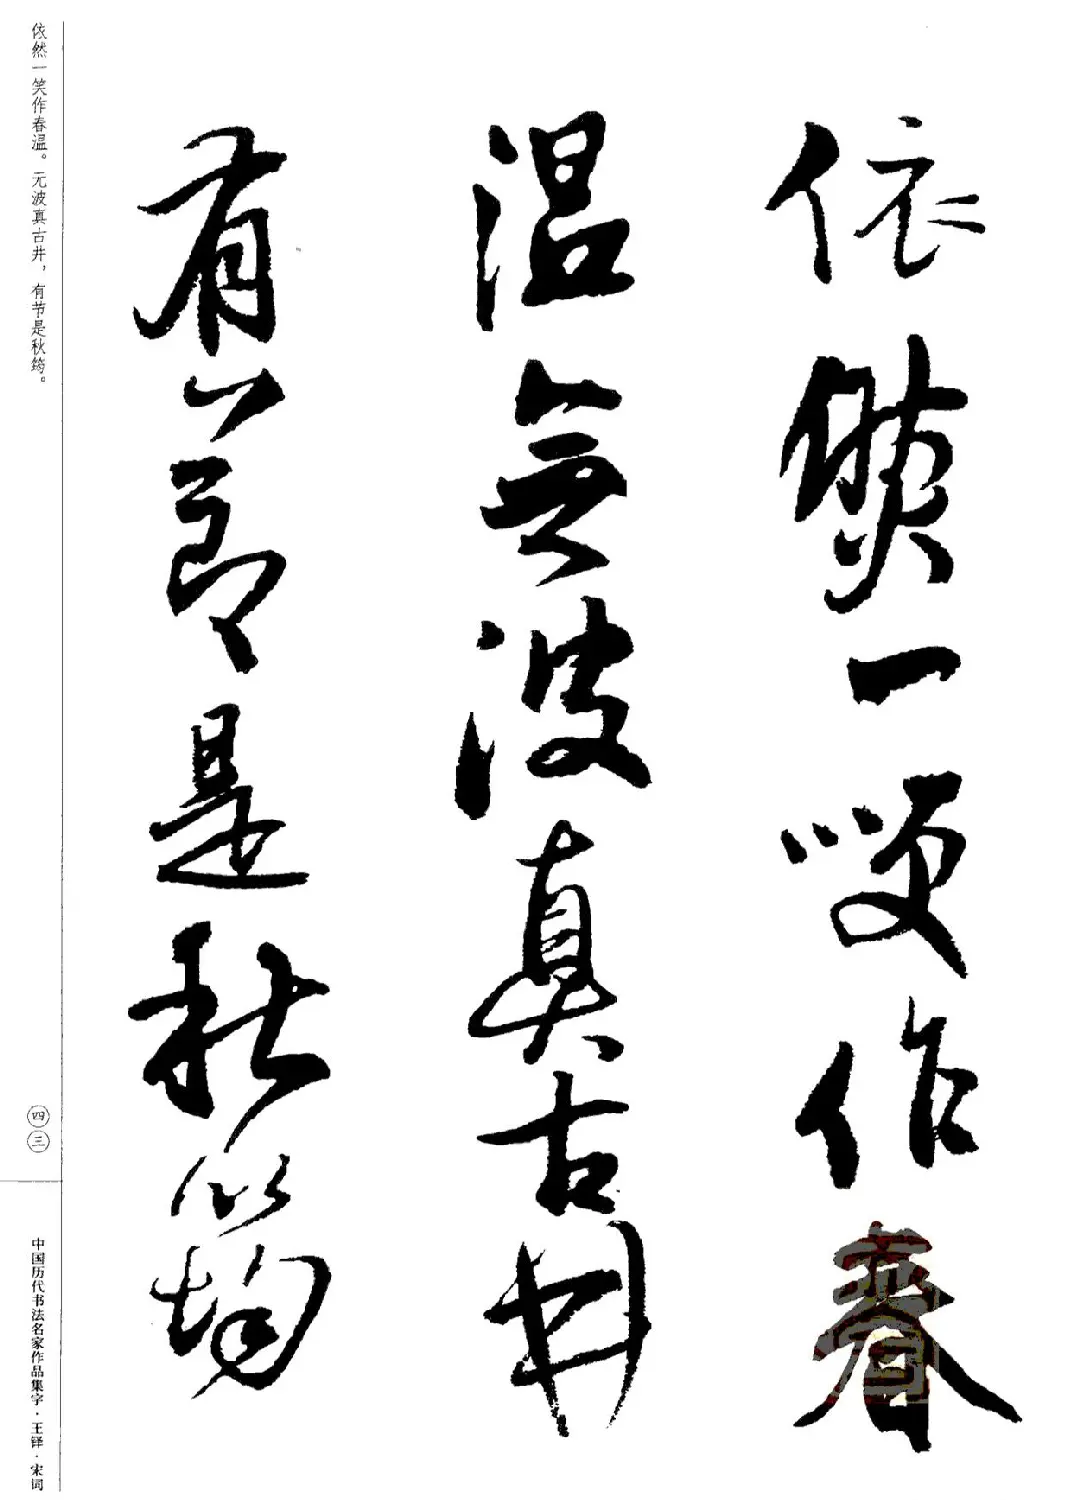 依然一笑作春
温無波真古井
有節是秋筠
依然一笑作春温。无波真古井，有节是秋筠。
四三
中国历代书法名家作品集字·王铎·宋词